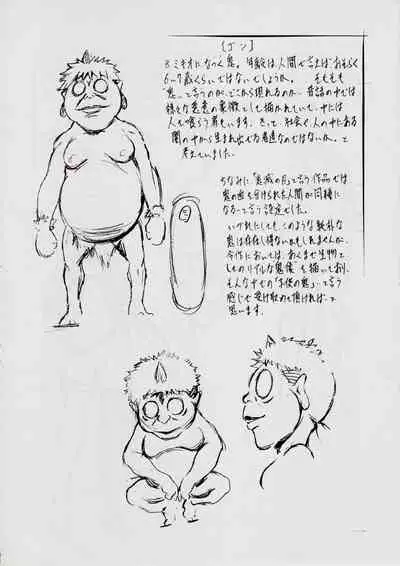 【ゴン】
※ミキオになつく鬼。年齢は人間で言えばおそらく
6〜7歳くらいではないでしょうか。そもそも
"鬼"と言うのが、どこから現れるのか、昔話の中では
様々な悪意の象徴として描かれていて、中には
人を喰らう者もいます。きっと、社会や人の中にある
闇の中から生まれ出でる者達なのではないか、と
考えていました。
ちなみに「鬼滅の刃」と言う作品では
鬼の血を分けられた人間が同様に
なる…と言う設定でした。
いづれにしても、このような
鬼は存在し得ないかもしれませんが、
今作においては、あくまで生物と
してのリアルな鬼像を描いており、
そんな中での「子供の鬼」…と言う
感じで受け取めて頂ければ…と
思います。